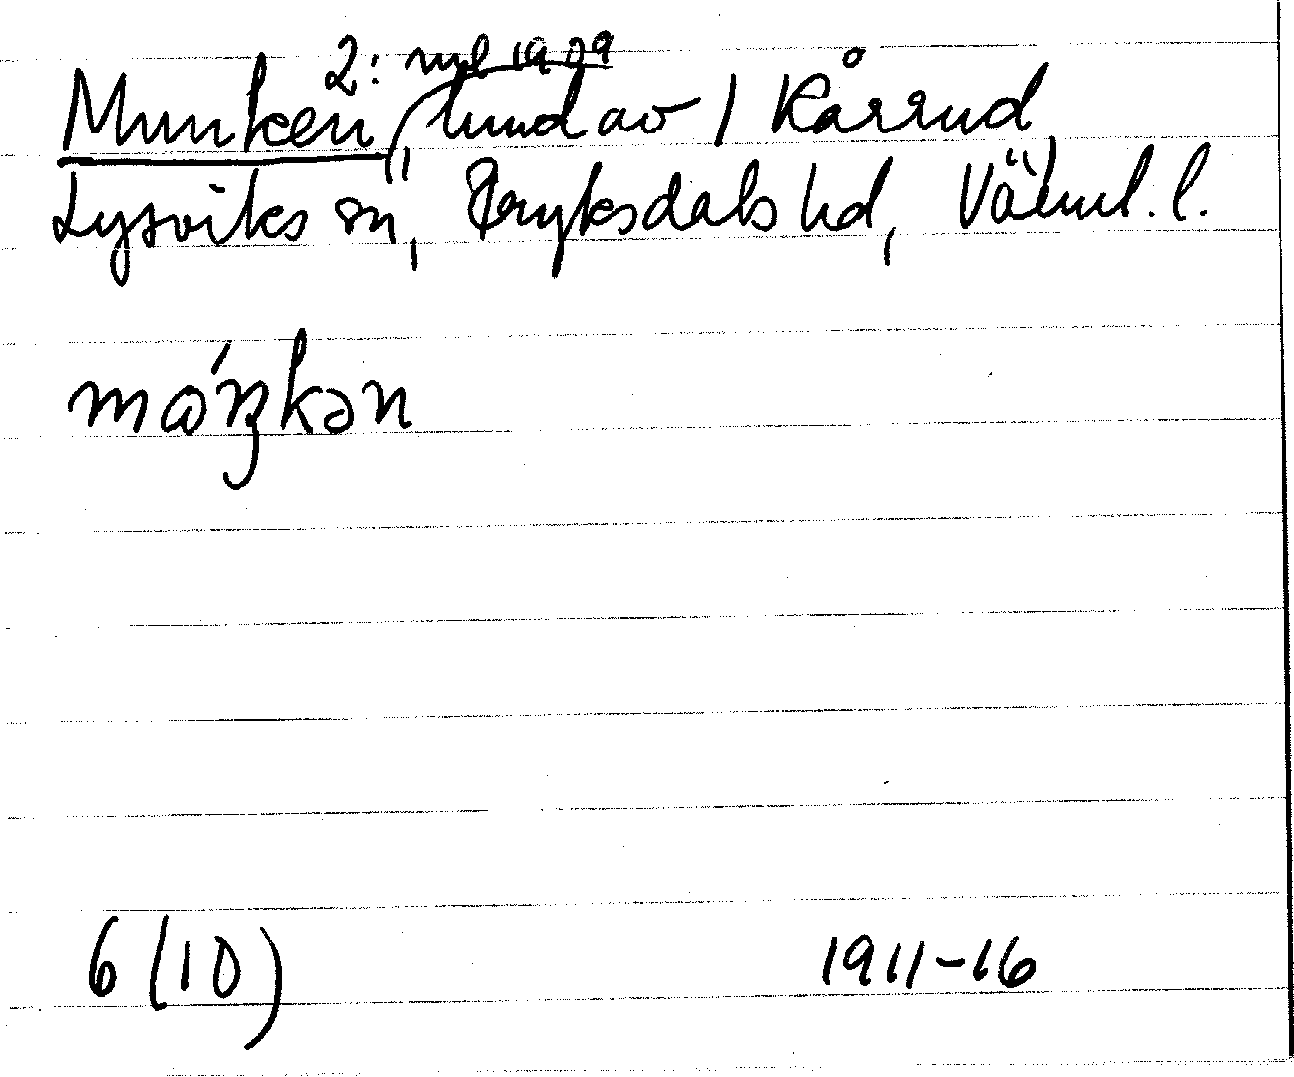 2: nyb 1929
Munken, hmd av 1 Kårrud,
Lysviks sn, Fryksdals hd, Värml. l.
mɷ́ŋkən
6 (10) 1911-16